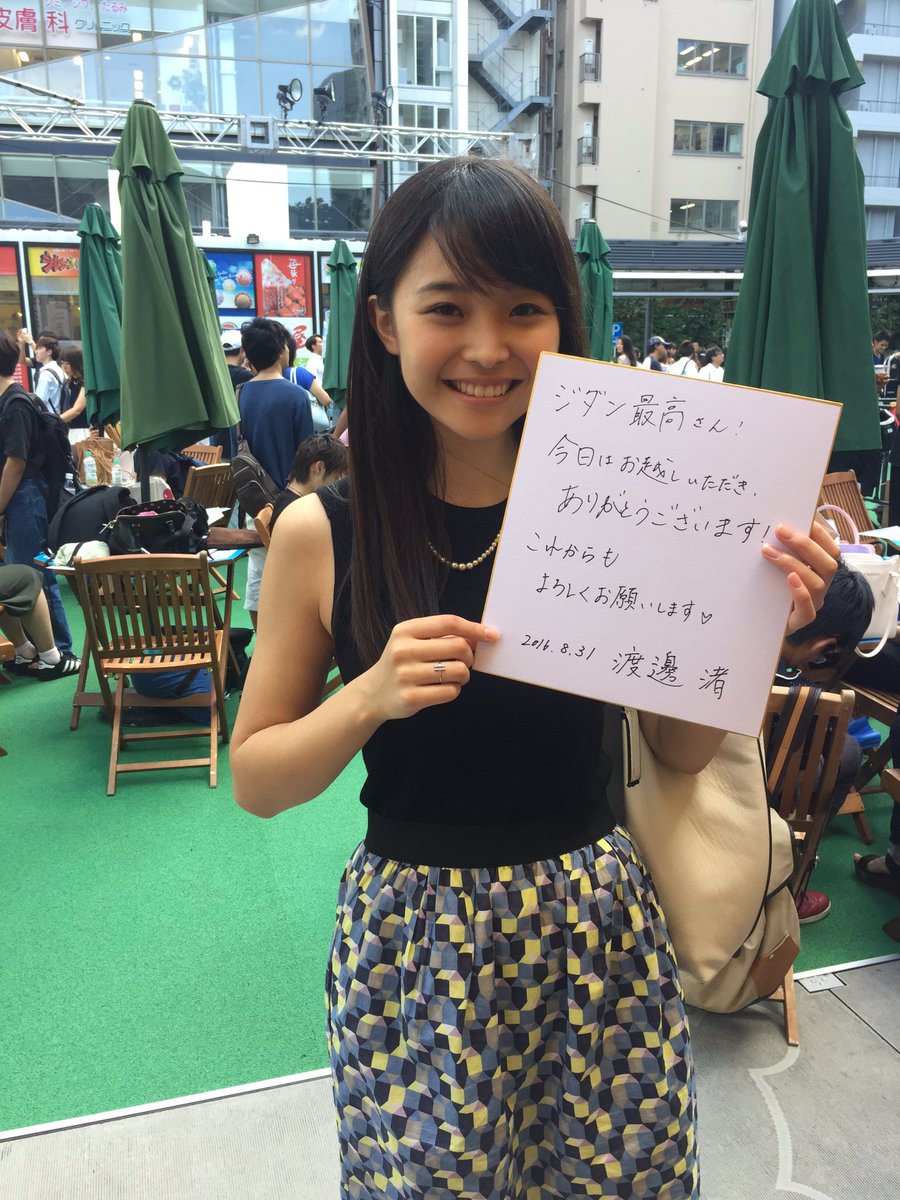 皮膚科
クリニック
ジダン最高さん!
今日はお越しいただき、
ありがとうございます!
これからも
よろしくお願いします♡
2016.8.31 渡邊 渚
P